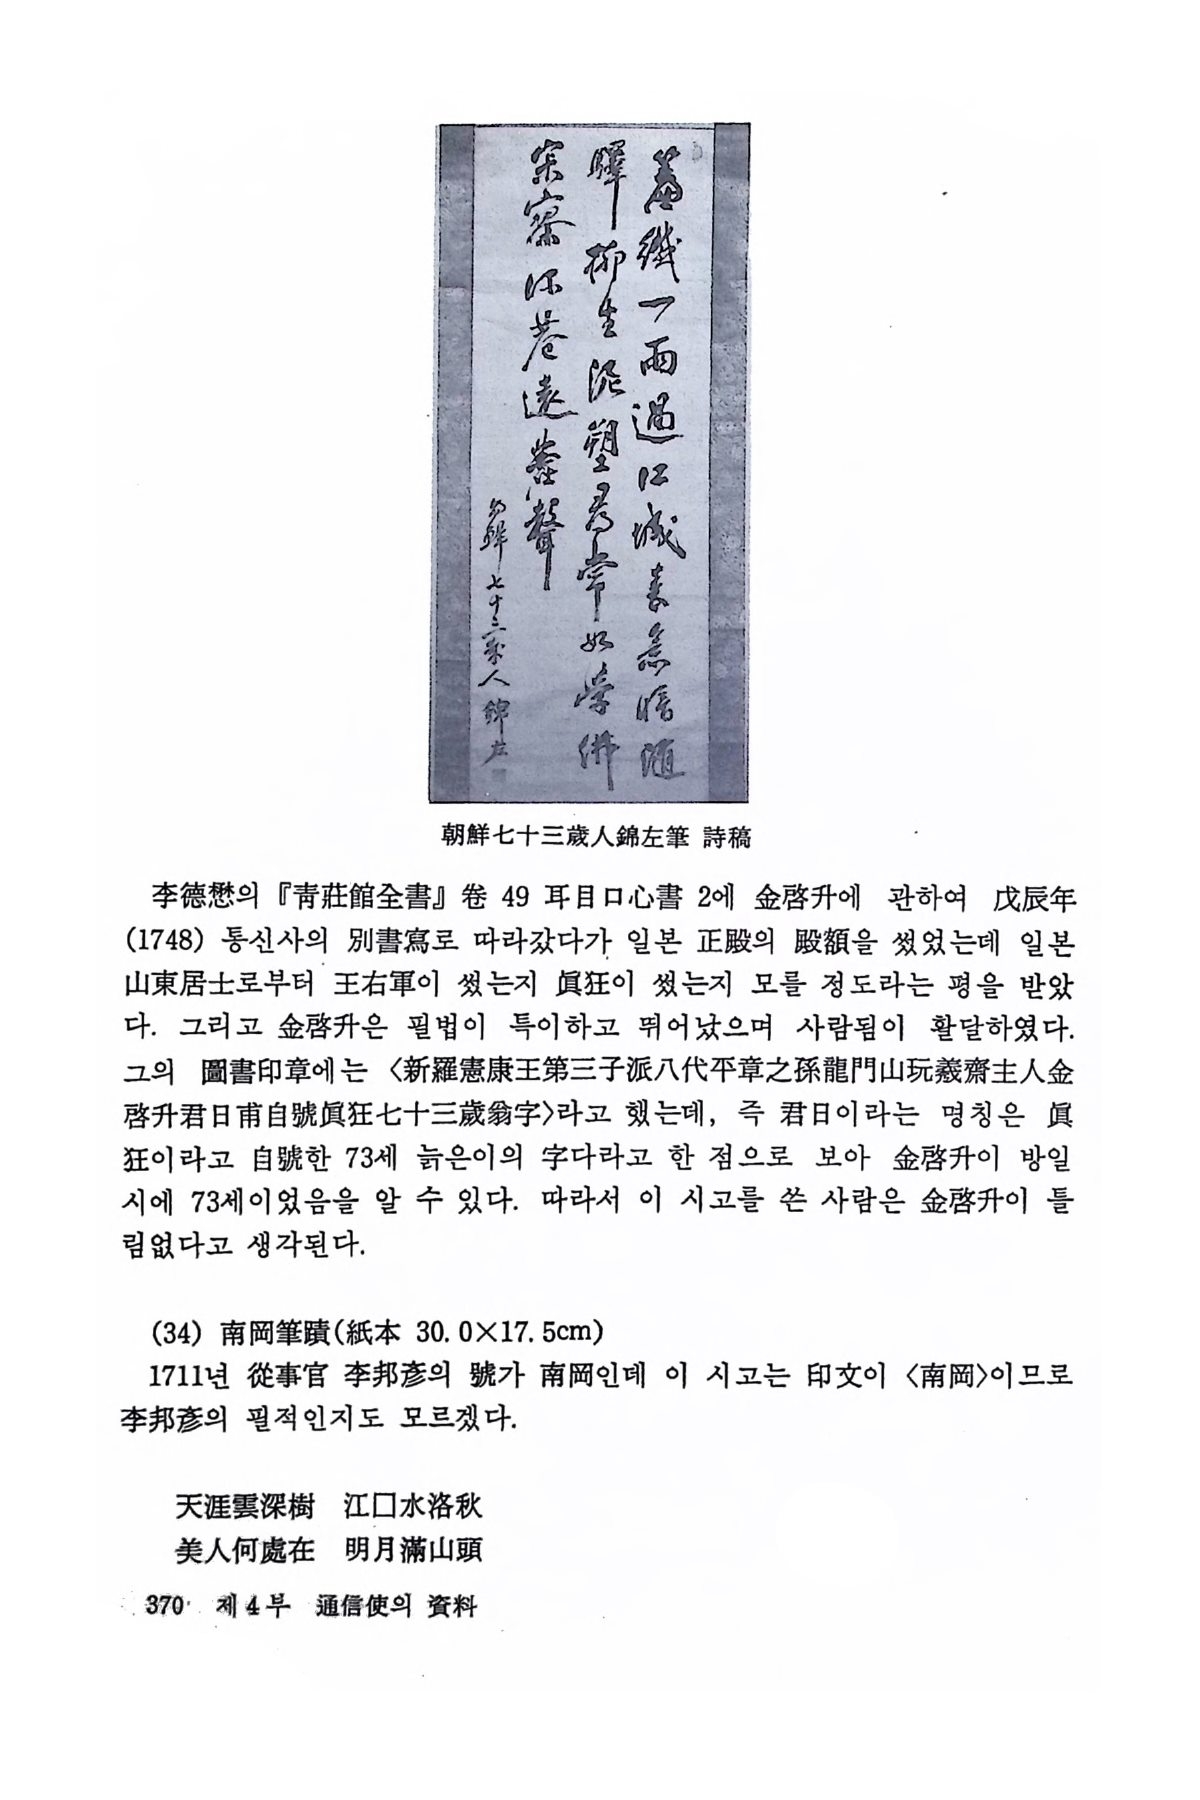 一雨過江城
柳生泥塑
尋常如學佛
深巷遠
聲
七十三歲人錦左
朝鮮七十三歲人錦左筆 詩稿
李德懋의『靑莊館全書』卷 49 耳目口心書 2에 金啓升에 관하여 戊辰年
(1748) 통신사의 別書寫로 따라갔다가 일본 正殿의 殿額을 썼었는데 일본
山東居士로부터 王右軍이 썼는지 眞狂이 썼는지 모를 정도라는 평을 받았
다. 그리고 金啓升은 필법이 특이하고 뛰어났으며 사람됨이 활달하였다.
그의 圖書印章에는 〈新羅憲康王第三子派八代平章之孫龍門山玩羲齋主人金
啓升君日甫自號眞狂七十三歲翁字〉라고 했는데, 즉 君日이라는 명칭은 眞
狂이라고 自號한 73세 늙은이의 字다라고 한 점으로 보아 金啓升이 방일
시에 73세이었음을 알 수 있다. 따라서 이 시고를 쓴 사람은 金啓升이 틀
림없다고 생각된다.
(34) 南岡筆蹟(紙本 30.0×17.5cm)
1711년 從事官 李邦彥의 號가 南岡인데 이 시고는 印文이 〈南岡〉이므로
李邦彥의 필적인지도 모르겠다.
天涯雲深樹 江□水洛秋
美人何處在 明月滿山頭
370 제4부 通信使의 資料